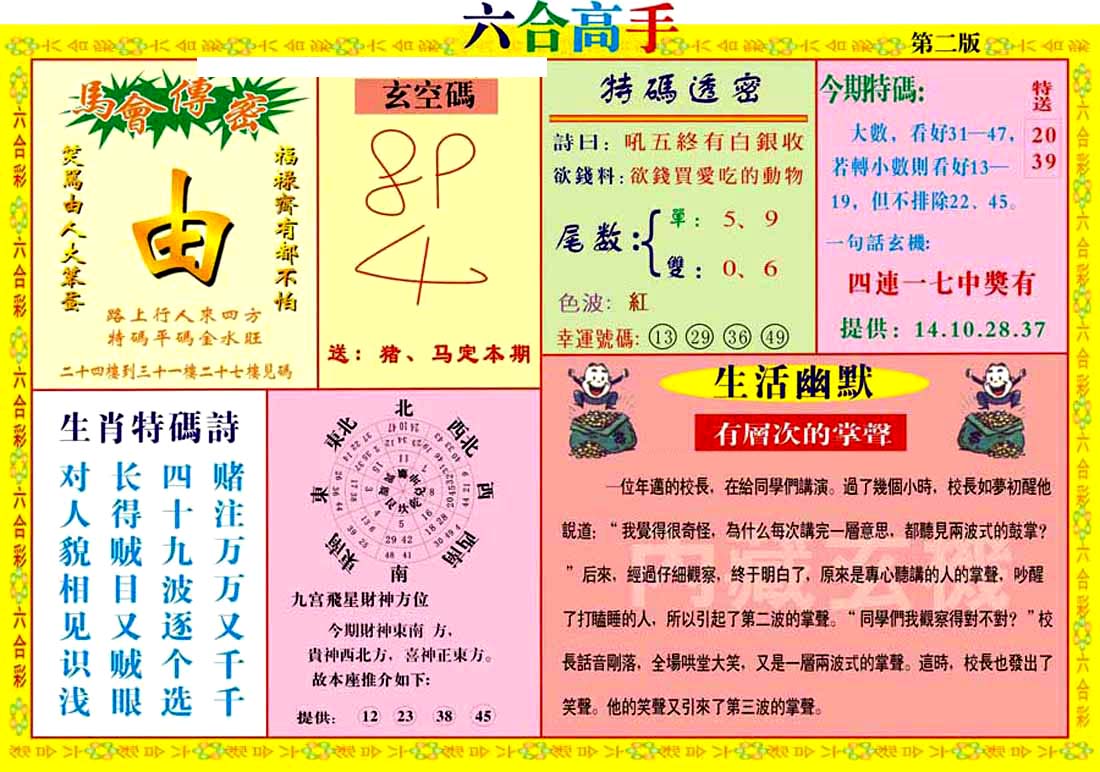 六合高手
第二版
馬會傳密
笑罵由人大笨蛋
由
福祿齊有都不怕
路上行人來四方
特碼平碼金水旺
二十四樓到三十一樓二十七樓見碼
玄空碼
送：猪、马定本期
特碼透密
詩曰：吼五終有白銀收
欲錢料：欲錢買愛吃的動物
尾数：
單：5、9
雙：0、6
色波：紅
幸運號碼：13 29 36 49
今期特碼：
特送
20
39
大數，看好31—47，
若轉小數則看好13—
19，但不排除22、45。
一句話玄機：
四連一七中獎有
提供：14.10.28.37
生肖特碼詩
赌注万万又千千
四十九波逐个选
长得贼目又贼眼
对人貌相见识浅
北
東北
西北
東
西
東南
西南
南
九宫飛星財神方位
今期財神東南 方，
貴神西北方，喜神正東方。
故本座推介如下：
提供： 12 23 38 45
生活幽默
有層次的掌聲
一位年邁的校長，在給同學們講演。過了幾個小時，校長如夢初醒他
說道：“ 我覺得很奇怪，為什么每次講完一層意思，都聽見兩波式的鼓掌？
” 后來，經過仔細觀察，终于明白了，原來是專心聽講的人的掌聲，吵醒
了打瞌睡的人，所以引起了第二波的掌聲。“ 同學們我觀察得對不對？ ” 校
長話音剛落，全場哄堂大笑，又是一層兩波式的掌聲。這時，校長也發出了
笑聲。他的笑聲又引來了第三波的掌聲。
内藏玄機